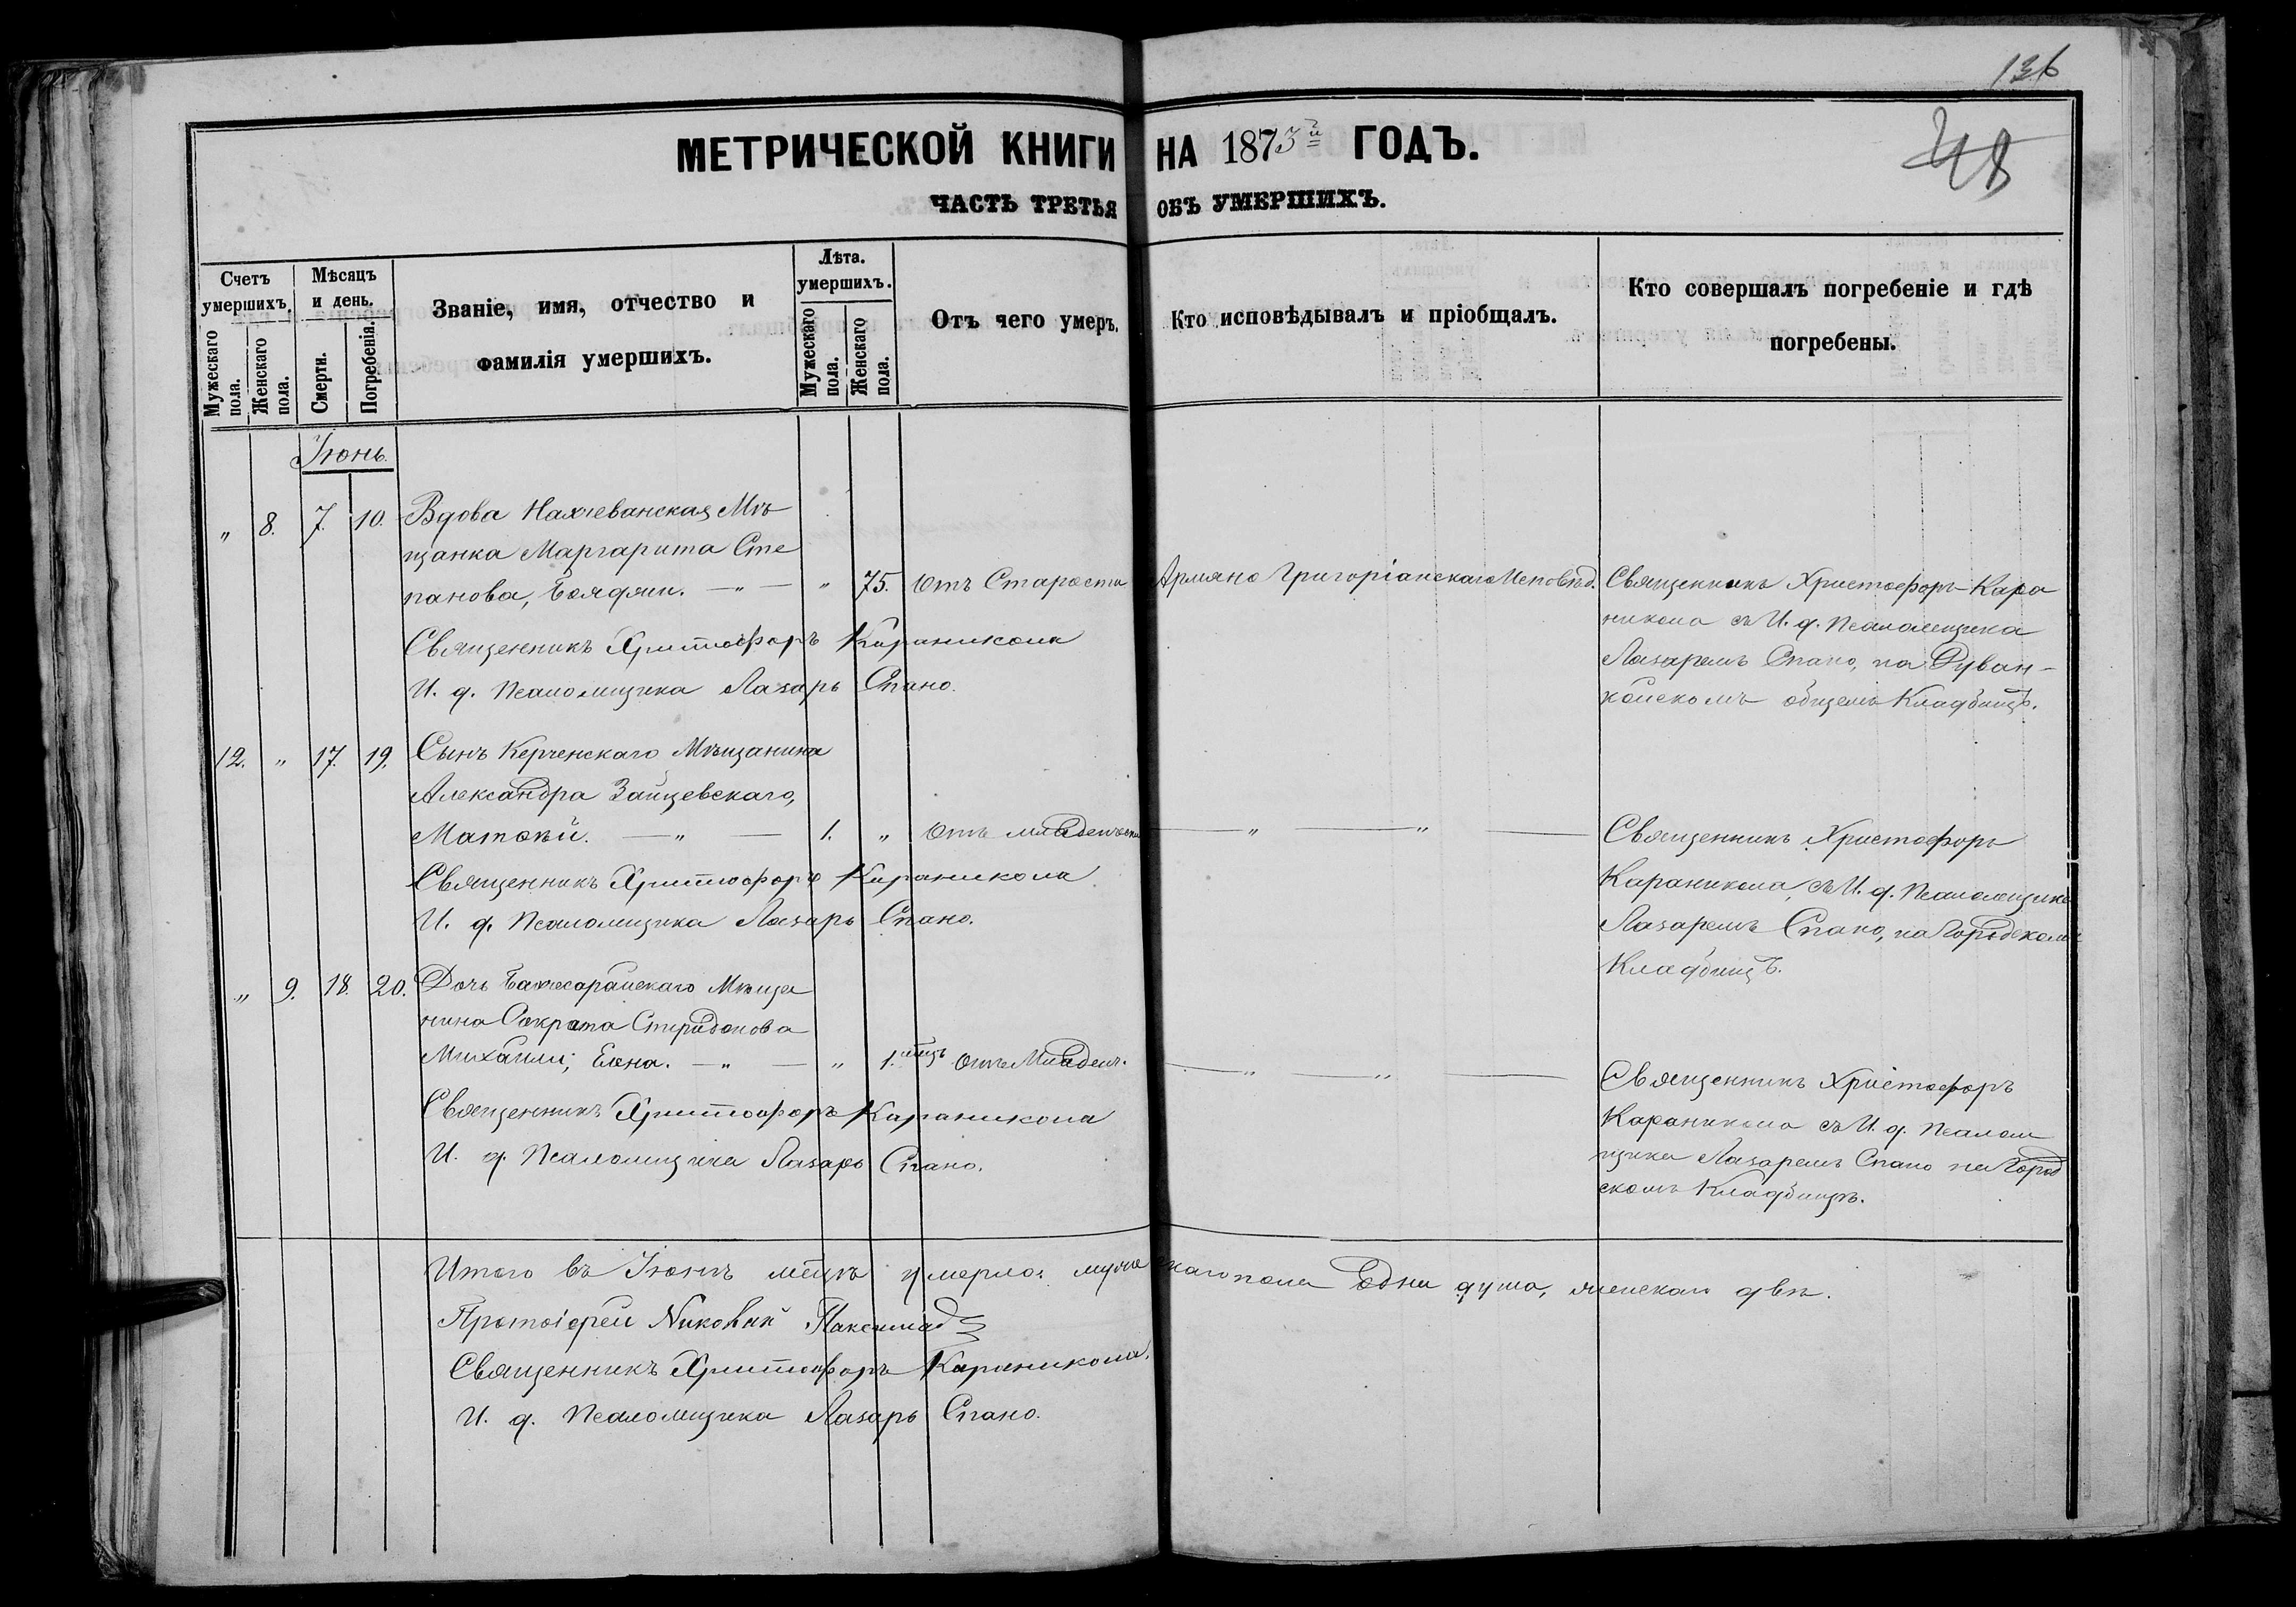 136
48
МЕТРИЧЕСКОЙ КНИГИ НА 1873й ГОДЪ.
ЧАСТЬ ТРЕТЬЯ ОБЪ УМЕРШИХЪ.
Счетъ умершихъ.
Мужескаго пола.
Женскаго пола.
Мѣсяцъ и день.
Смерти.
Погребенія.
Званіе, имя, отчество и
фамилія умершихъ.
Лѣта.
умершихъ.
Мужескаго пола.
Женскаго пола.
Отъ чего умеръ.
Кто исповѣдывалъ и пріобщалъ.
Кто совершалъ погребеніе и гдѣ
погребены.
Іюнь.
" 8. 7. 10. Вдова Нахичеванская Мѣ
щанка Маргарита Сте
панова, — " — " 75. Отъ Старости Армяно Григоріанскаго Исповѣд.
Священникъ Христофоръ Караникола
И. д. Псаломщика Лазарь Спано.
Священникъ Христофоръ Кара
никола съ И. д. Псаломщика
Лазаремъ Спано, на Дуван-
койскомъ общемъ Кладбищѣ.
12. " 17. 19. Сынъ Керченскаго Мѣщанина
Александра Зайцевскаго,
Матѳѣй. — " — 1. " Отъ младенческ — " — " —
Священникъ Христофоръ Караникола
И. д. Псаломщика Лазарь Спано.
Священникъ Христофоръ
Караникола, съ И. д. Псаломщика
Лазаремъ Спано, на Городскомъ
Кладбищѣ.
" 9. 18. 20. Дочь Бахчесарайскаго Мѣща
нина Сократа Спиридонова
Михаили; Елена. — " — " 1. мѣц Отъ Младенч. — " — " —
Священникъ Христофоръ Караникола
И. д. Псаломщика Лазарь Спано.
Священникъ Христофоръ
Караникола съ И. д. Псалом
щика Лазаремъ Спано на Город
скомъ Кладбищѣ.
Итого въ Іюнѣ мѣцѣ умерло: мужескаго пола одна душа, женскаго двѣ.
Протоіерей
Священникъ Христофоръ Караникола.
И. д. Псаломщика Лазарь Спано.